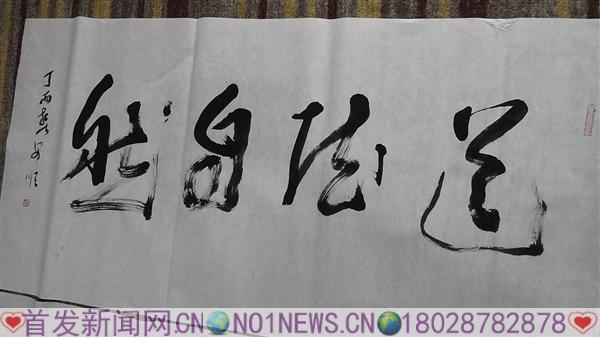 道法自然
丁酉
首发新闻网.CN NO1NEWS.CN 18028782878